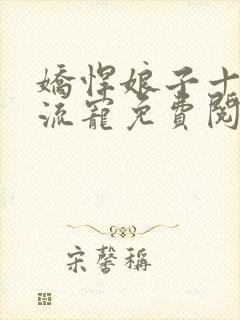 嬌悍娘子十
流寵免費閱
宋馨稱